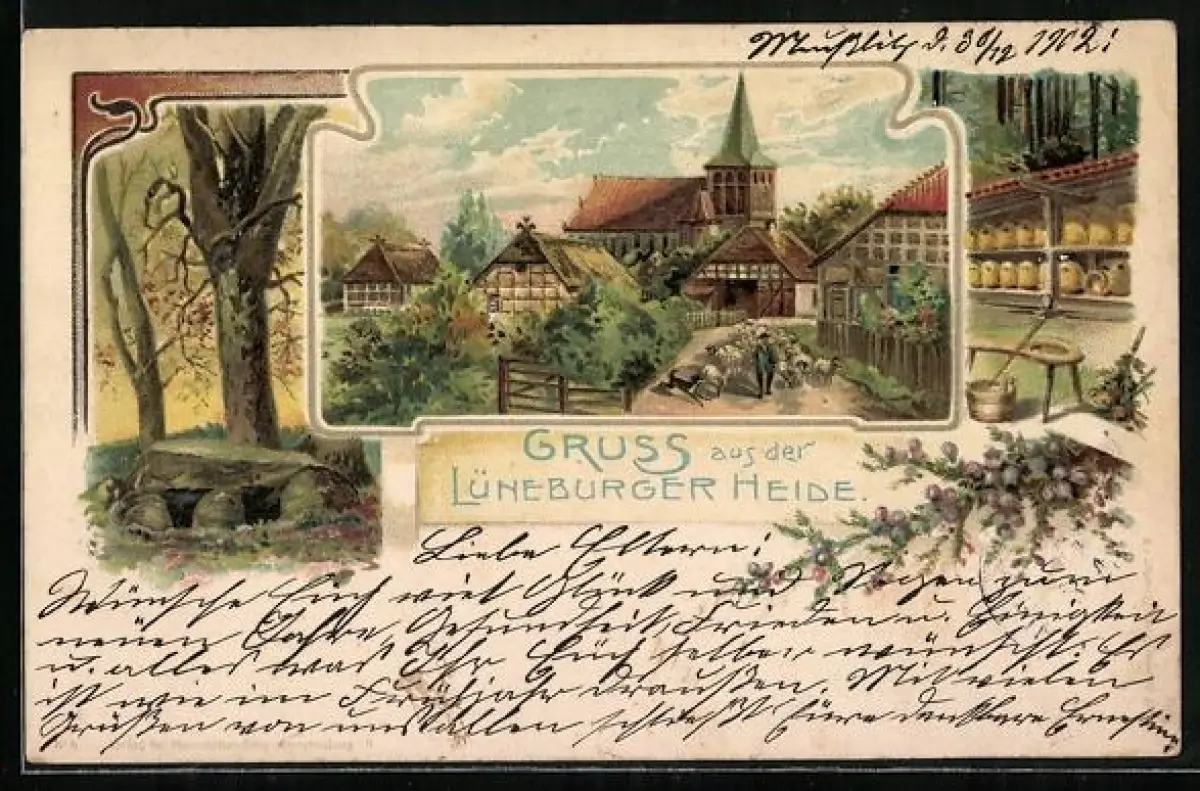 d. 30/12 1902!
GRUSS aus der
LÜNEBURGER HEIDE.
Liebe Eltern!
Wünsche Euch viel Glück und Segen zum
neuen Jahre, Gesundheit, Frieden u. Einigkeit
u. alles was Ihr Euch selber wünscht. Es
ist wie im Frühjahr draußen. Mit vielen
Grüßen von uns allen schließt Eure dankbare Ernestine